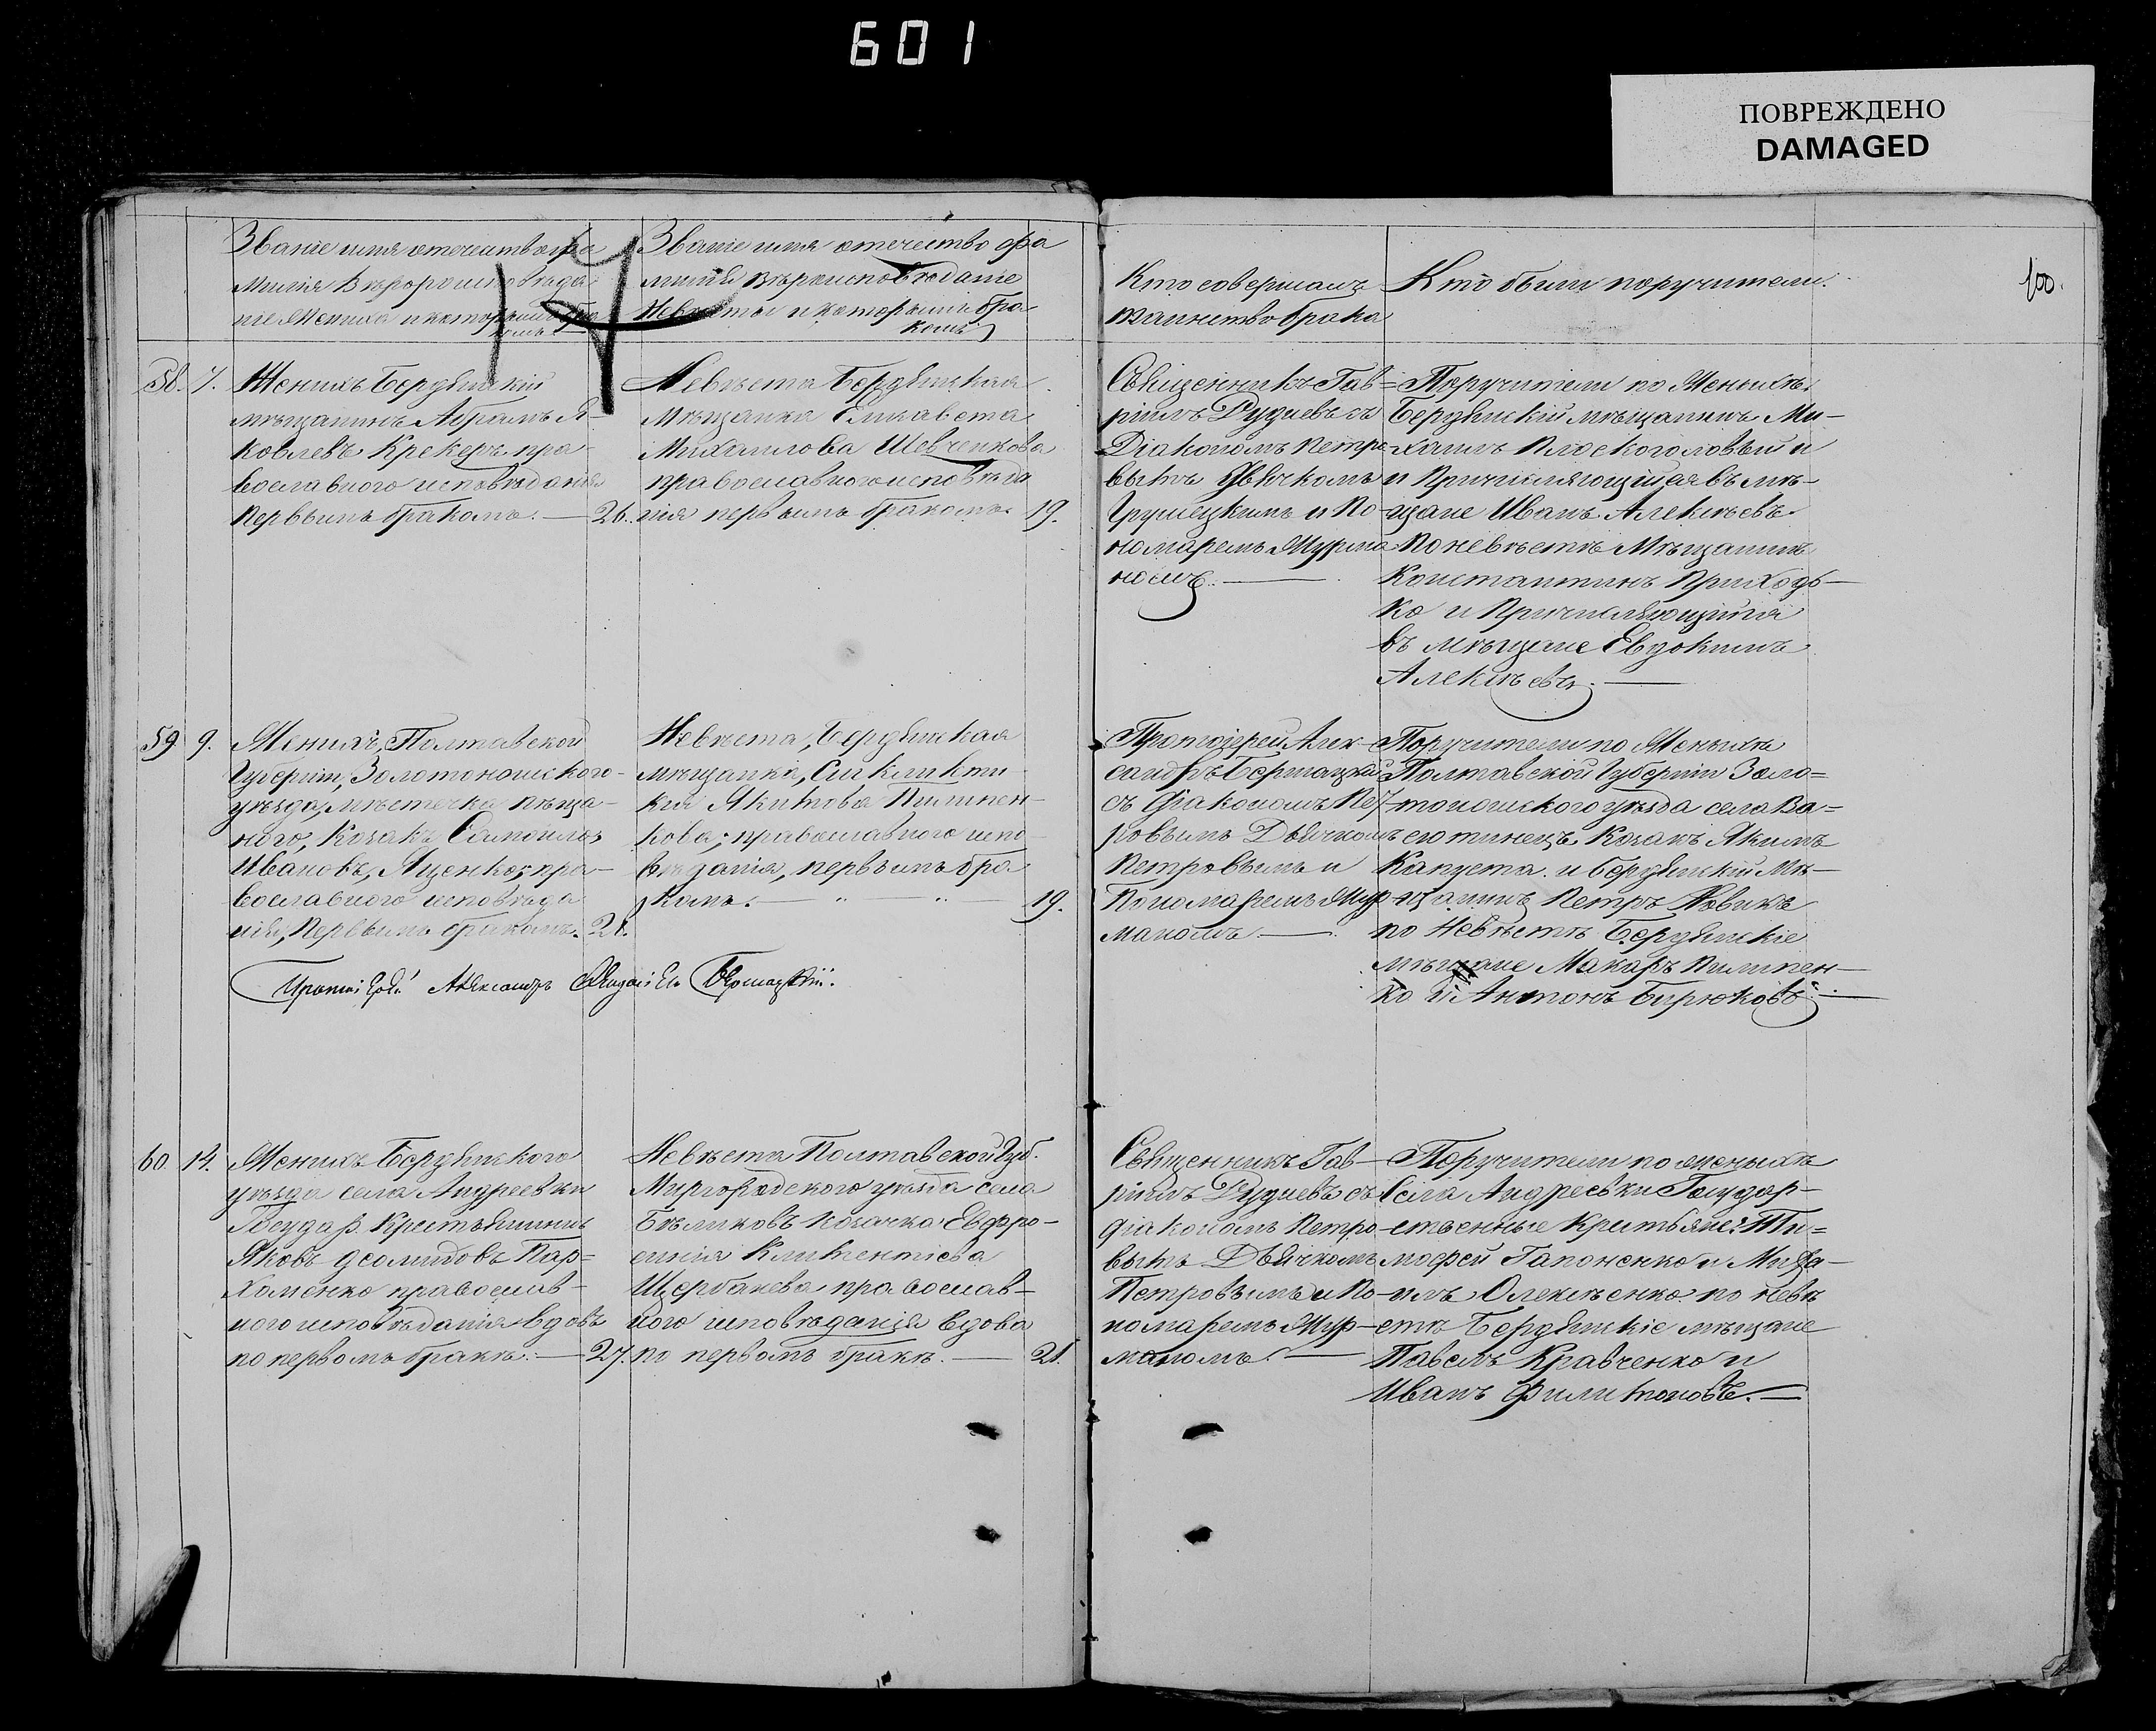 601
ПОВРЕЖДЕНО
DAMAGED
Званіе имя отечество фа
милія Вѣроисповѣда
ніе Жениха и которымъ бра
комъ
Званіе имя отечество фа
милія Вѣроисповѣданіе
Невѣсты и которымъ бра
комъ
Кто совершалъ
таинство брака
Кто были поручители.
100.
58. 7. Женихъ Бердянскій
мѣщанинъ Абрамъ Я-
ковлевъ Крекеръ пра-
вославного исповѣданія
первымъ бракомъ. — 26.
Невѣста Бердянская
Мѣщанка Елисавета
Михаилова Шевченкова
православного исповѣда
нія первымъ бракомъ. 19.
Священникъ Гав=
ріилъ Дудиевъ съ
Діакономъ Петро
вымъ Дьячкомъ
Грушецкимъ и По-
номаремъ Мурма
номъ. —
Поручители по Женихѣ,
Бердянскій мѣщанинъ Ми-
хаилъ Плоскоголовый и
и Причисляющійся въ мѣ-
щане Иванъ Алексѣевъ.
по невѣстѣ Мѣщанинъ
Константинъ Приходь-
ко и Причисляющійся
въ мѣщане Евдокимъ
Алексѣевъ. —
59 9. Женихъ, Полтавской
Губерніи, Золотоношского
уѣзда, мѣстечка Пѣща-
ного, Козакъ Самоилъ
Ивановъ, Яценко, пра-
вославного исповѣда
нія, Первымъ бракомъ. 21.
Невѣста, Бердянская
мѣщанка, Синклити-
кія Якимова Пилипен-
кова, православного испо
вѣданія, первымъ бра
комъ. — " — " 19.
Протоіерей Алек-
сандръ Бершацкій
съ Діакономъ Пет-
ровымъ Дьячкомъ
Петровымъ и
Пономаремъ Мур-
маномъ. —
Поручители по Женихѣ
Полтавской Губерніи Золо=
тоношского уѣзда села Ва=
сютинецъ Козакъ Якимъ
Капуста и Бердянскій Мѣ-
щанинъ Петръ Новикъ
по Невѣстѣ Бердянскіе
мѣщане Макаръ Пилипен-
ко и Антонъ Бирюковъ. —
Протоіерей Александръ Бершацкій.
60. 14. Женихъ Бердянского
уѣзда села Андреевки
Государ. Крестьянинъ
Яковъ Деомидовъ Пар=
хоменко православ-
ного исповѣданія вдовъ
по первомъ бракѣ. — 27.
Невѣста Полтавской Губ.
Миргородского уѣзда села
Бѣликовъ козачка Евфро-
синія Климентіева
Щербакева православ-
ного исповѣданія вдова
по первомъ бракѣ. — 21.
Священникъ Гав-
ріилъ Дудиевъ съ
діакономъ Петро-
вымъ Дьячкомъ
Петровымъ и По-
номаремъ Мур-
маномъ. —
Поручители по женихѣ
Села Андреевки Государ-
ственные Крестьяне: Ти=
мофей Гапоненко и Миха-
илъ Олексѣенко по невѣ
стѣ Бердянскіе мѣщане
Павелъ Кравченко и
Иванъ Филимоновъ. —